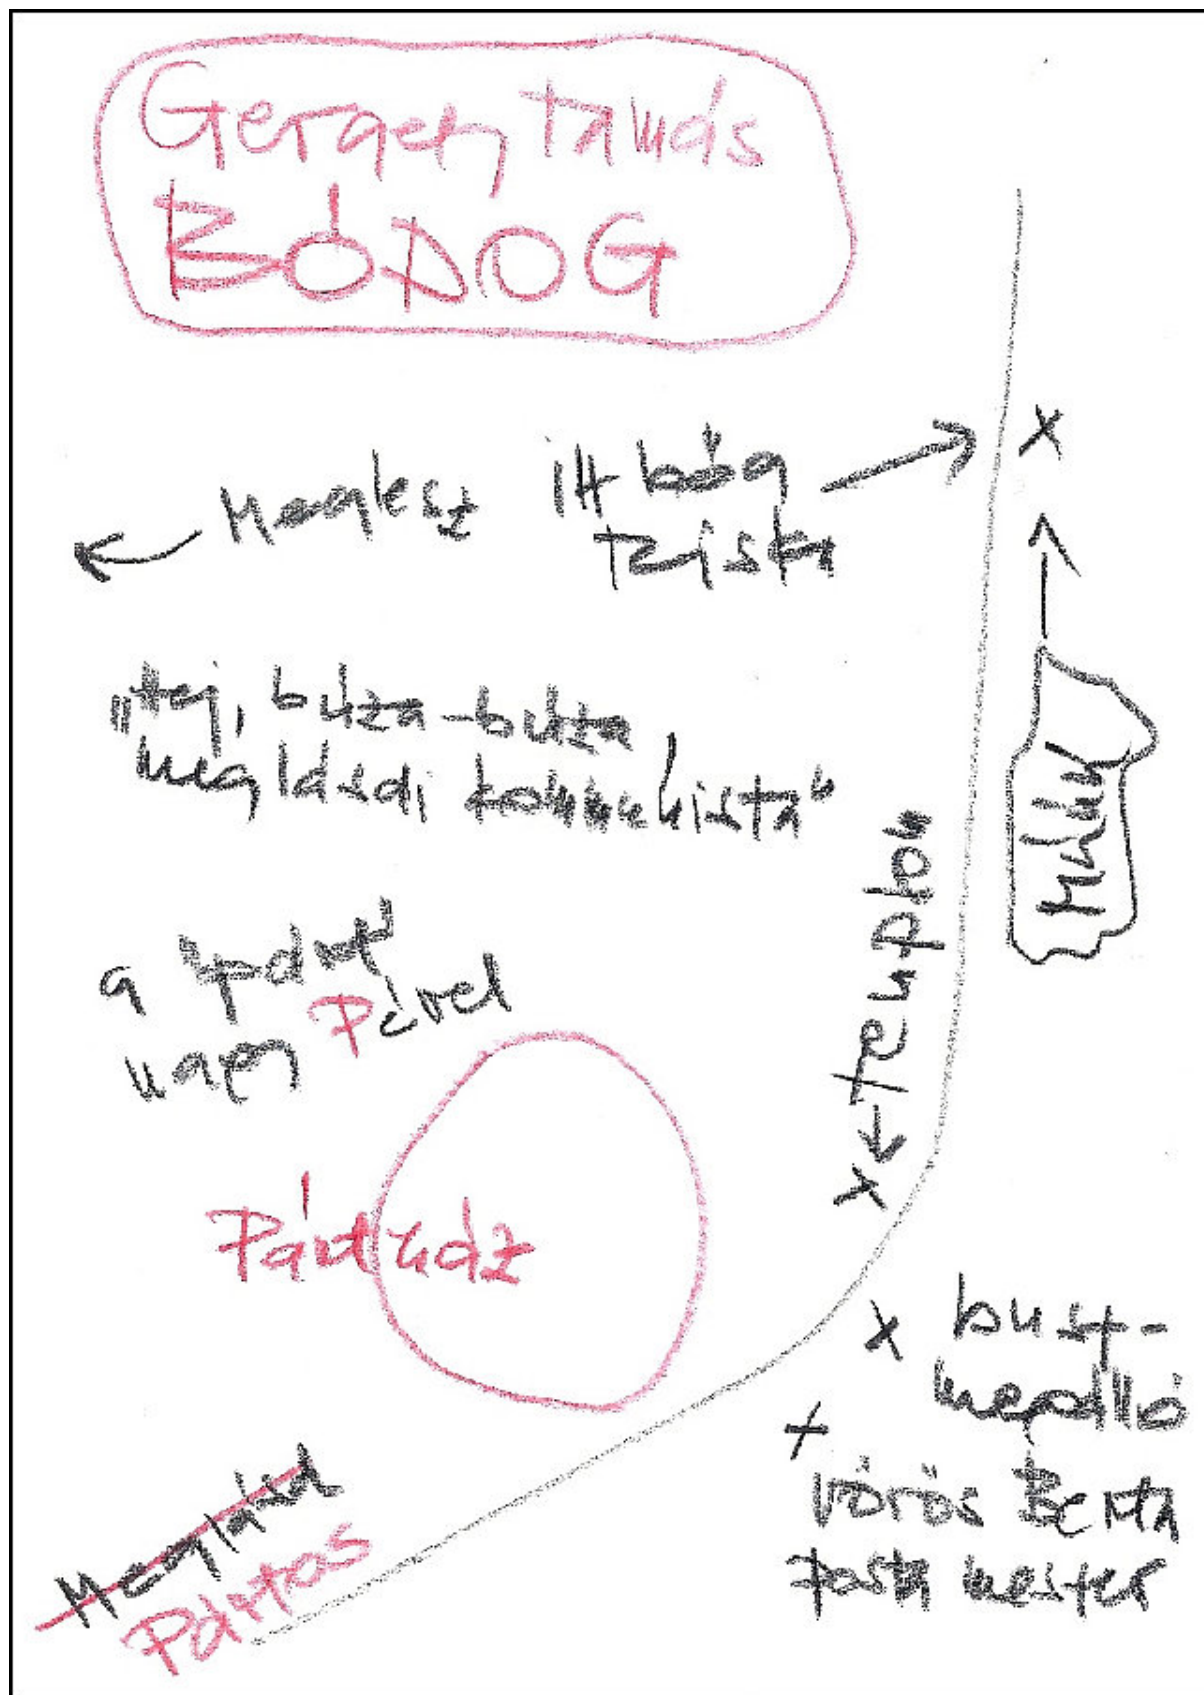 Gergely Tamás
BÓDOG
Meglesz
itt bőg
Riska
„Hej, buta-buta
meglásdi kommunista"
a párt
nagy Pével
Malom
templom
Pártház
x buszt-
megálló
Vörös Berta
postamester
Meglásd
Pártos